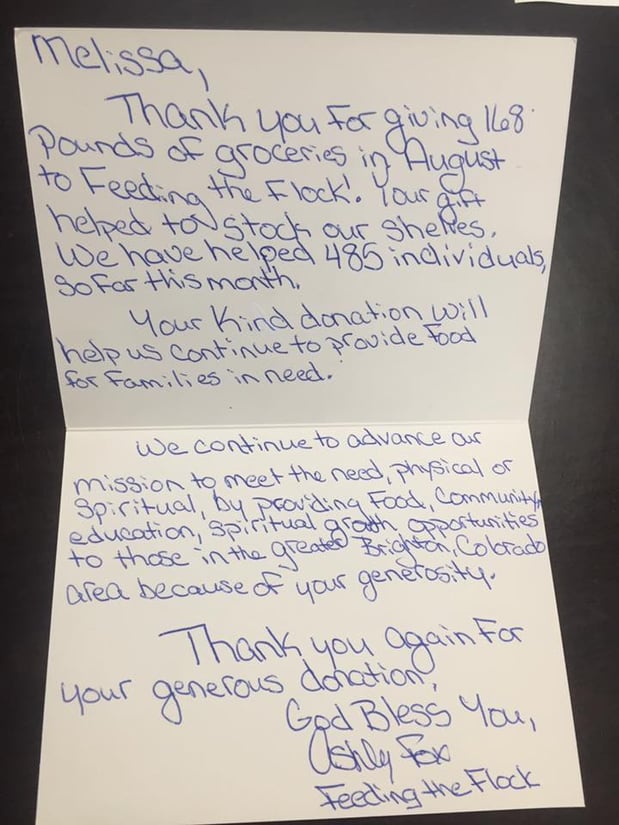 Melissa,
Thank you for giving 168
Pounds of groceries in August
to Feeding the Flock! Your gift
helped to stock our shelves.
We have helped 485 individuals,
so far this month.
Your kind donation will
help us continue to provide food
for families in need.
We continue to advance our
mission to meet the need, physical or
spiritual, by providing food, community,
education, spiritual growth opportunities
to those in the greater Brighton, Colorado
area because of your generosity.
Thank you again for
your generous donation,
God Bless You,
Ashly Fox
Feeding the Flock